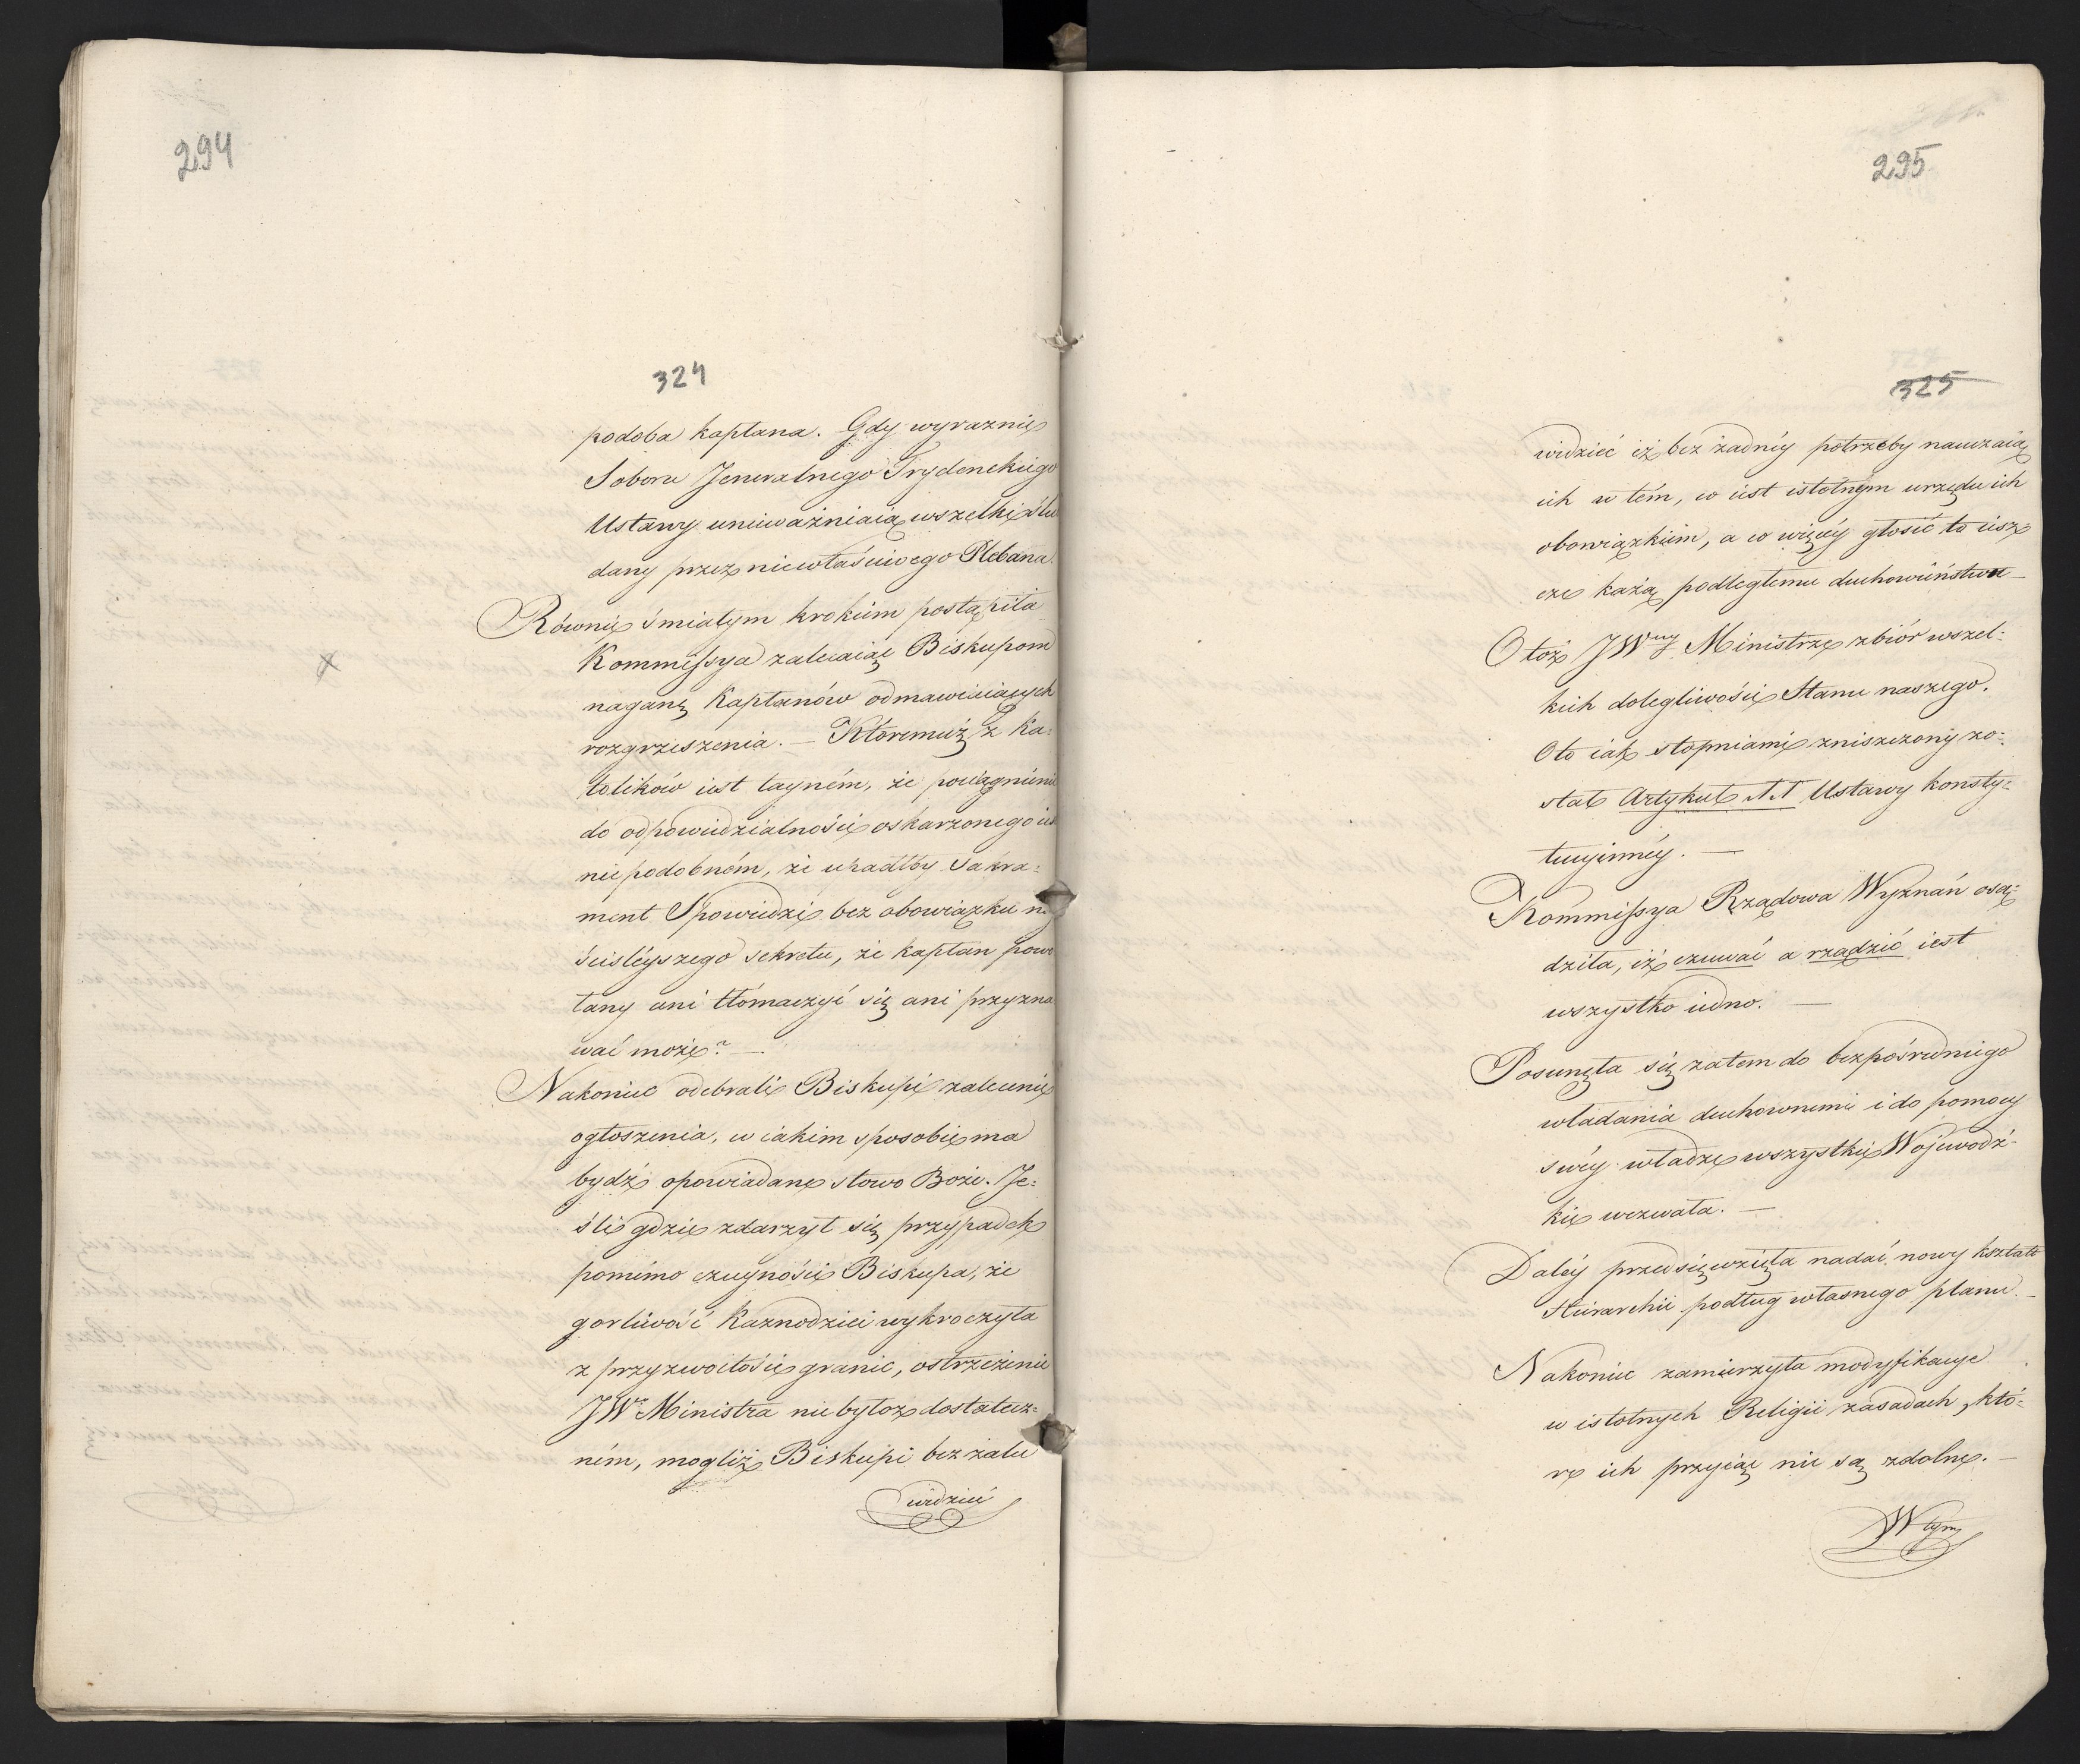 294
324
podoba kapłana. Gdy wyraznie
Soboru Jeneralnego Trydenckiego
Ustawy unieważniaią wszelki ślu
dany przez niewłaściwego Plebana.
Równie śmiałym krokiem postąpiła
Kommissya zalecaiąc Biskupom
naganę Kapłanów odmawiaiących
rozgrzeszenia. — Któremuż z Ka=
tolików iest tayném, że pociągnienie
do odpowiedzialności oskarzonego ies
niepodobném, że upadłby Sakra=
ment Spowiedzi bez obowiązku na
ściśléyszego sekretu, że kapłan powo
łany ani tłómaczyć się ani przyzna
wać może? —
Nakoniec odebrali Biskupi zalecenie
ogłoszenia, w iakim sposobie ma
bydź opowiadane słowo Boże. Je=
śli gdzie zdarzył się przypadek
pomimo czuyności Biskupa, że
gorliwość Kaznodziei wykroczyła
z przyzwoitości granic, ostrzeżenie
JW Ministra nie byłoż dostatecz=
ném, mogliż Biskupi bez żalu
widzieć
295
325
widzieć iż bez żadnéy potrzeby nauczaią
ich w tém, co iest istotnym urzędu ich
obowiązkiem, a co więcéy głosić to iesz=
cze każą podległemu duchowieństwu —
Otoż JWny Ministrze zbiór wszel=
kich dolegliwości Stanu naszego.
Oto iak stopniami zniszczony zo=
stał Artykuł XI Ustawy konsty=
tucyinnéy. —
Kommissya Rządowa Wyznań osą=
dziła, iż czuwać a rządzić iest
wszystko iedno. —
Posunęła się zatem do bezpośredniego
władania duchownemi i do pomocy
swéy władze wszystkie Wojewodz=
kie wezwała. —
Daléy przedsięwzięła nadać nowy kształt
Hierarchii podług własnego planu. —
Nakoniec zamierzyła modyfikacye
w istotnych Religii zasadach, któ=
re ich przyiąć nie są zdolne. —
W tym